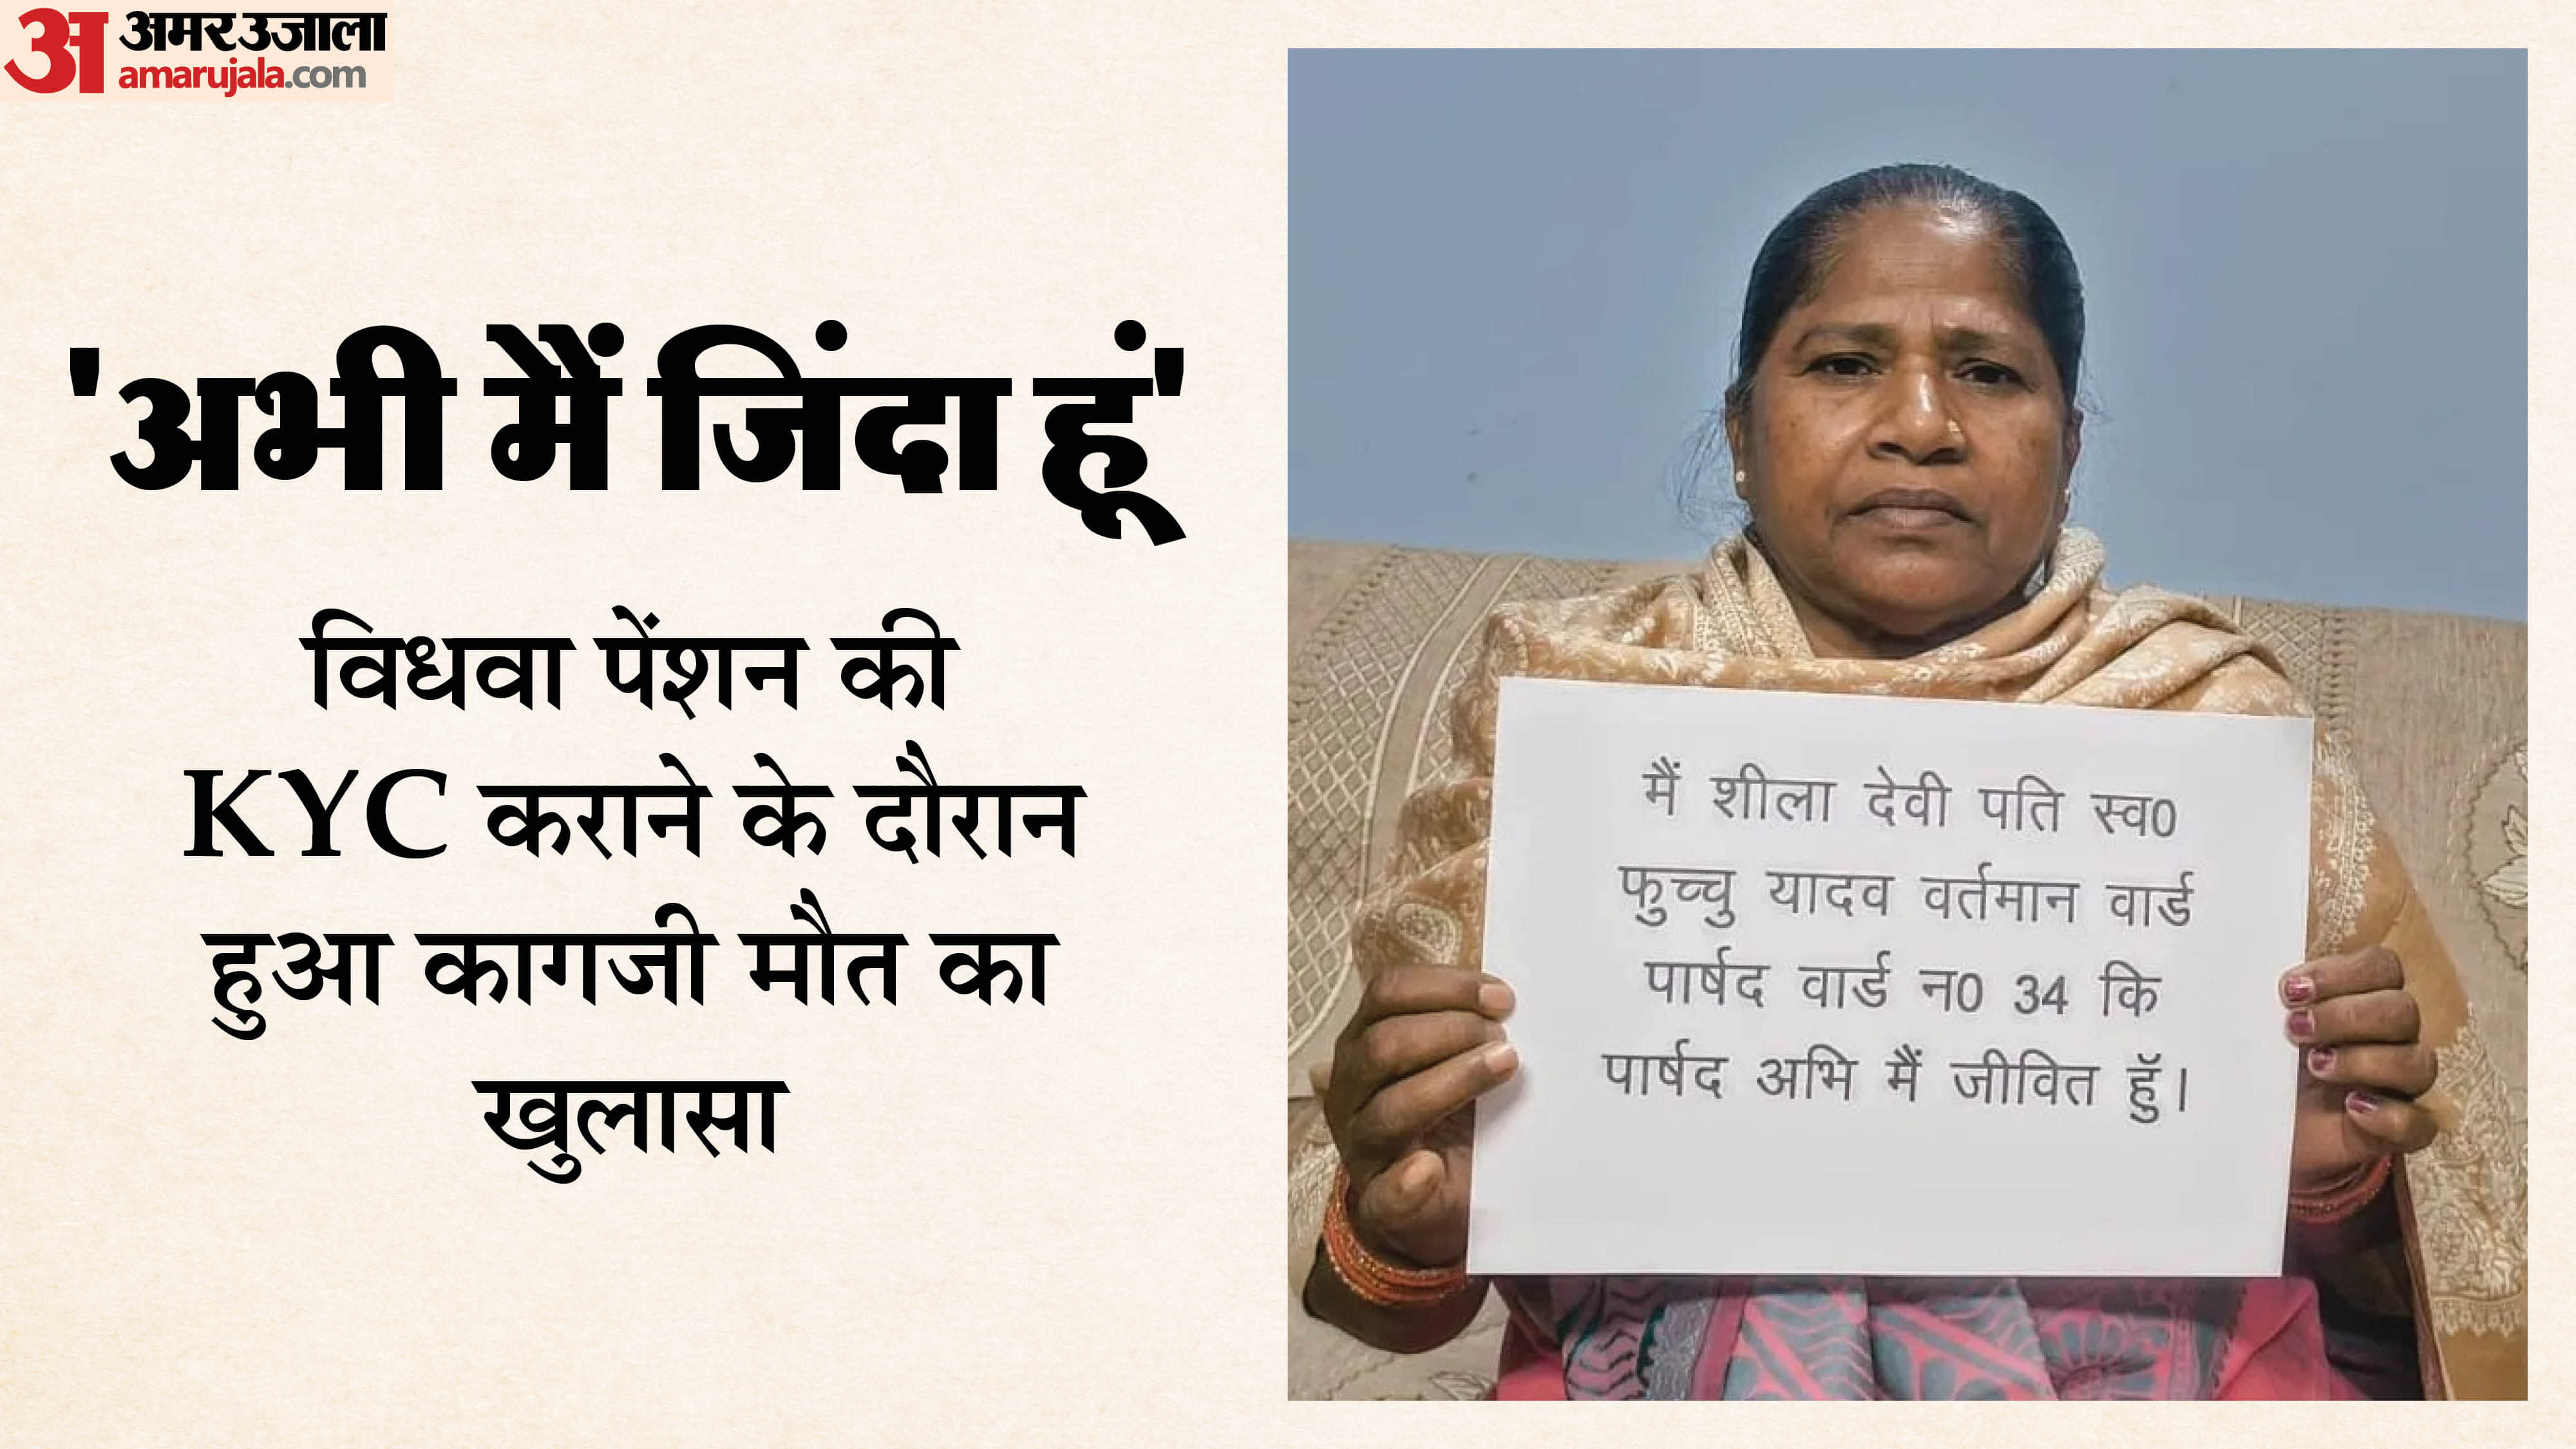 अ अमर उजाला
amarujala.com
'अभी मैं जिंदा हूं'
विधवा पेंशन की
KYC कराने के दौरान
हुआ कागजी मौत का
खुलासा
मैं शीला देवी पति स्व0
फुच्चु यादव वर्तमान वार्ड
पार्षद वार्ड न0 34 कि
पार्षद अभि मैं जीवित हुॅ।